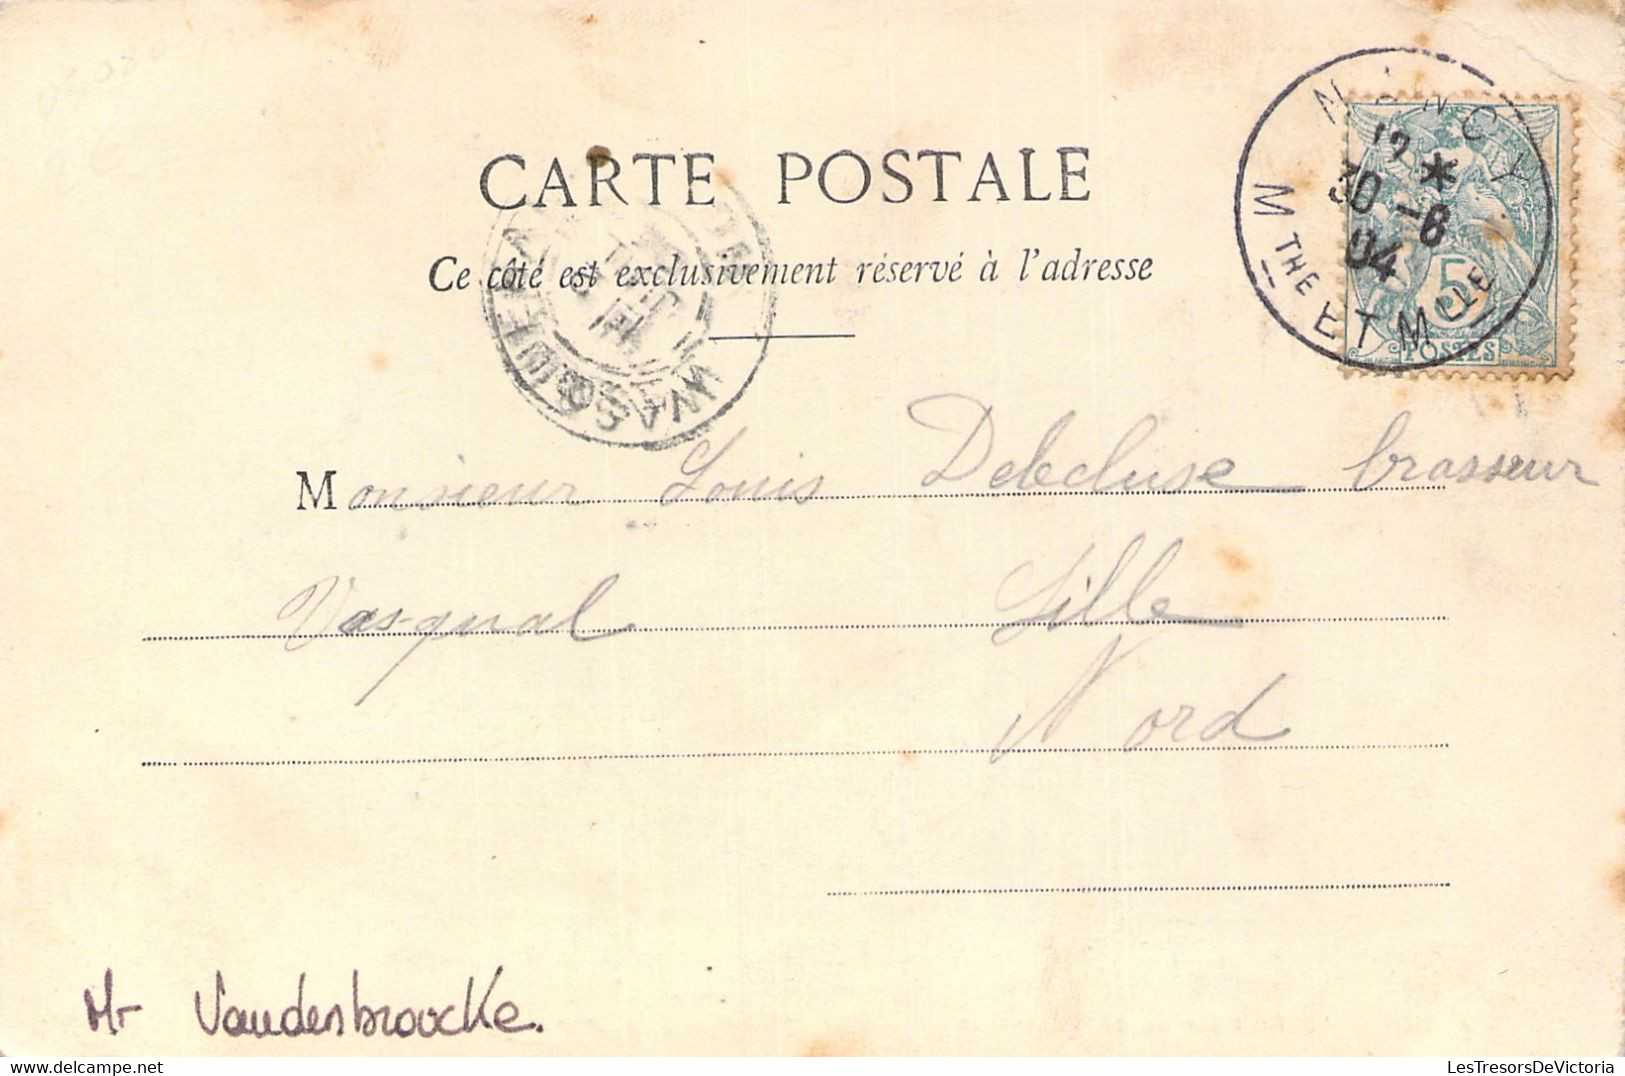 CARTE POSTALE
Ce côté est exclusivement réservé à l'adresse
NANCY
12 *
30 -6
04
MTHE ET MLLE
5
POSTES
WASQUEHAL
Monsieur Louis Delecluse brasseur
Vas-qual Lille
Nord
Mr Vandenbroucke.
LesTresorsDeVictoria